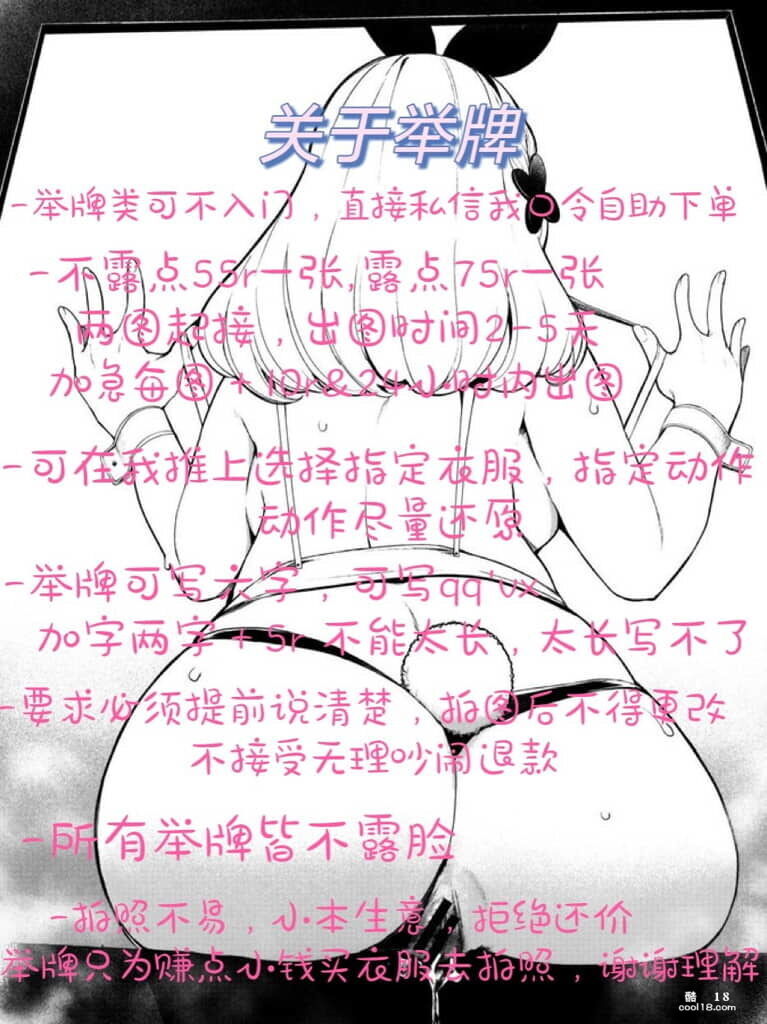 关于举牌
-举牌类可不入门，直接私信我口令自助下单
-不露点55r一张,露点75r一张
两图起接，出图时间2-5天
加急每图+10r&24小时内出图
-可在我推上选择指定衣服，指定动作
动作尽量还原
-举牌可写六字，可写qq'vx
加字两字+5r 不能太长，太长写不了
-要求必须提前说清楚，拍图后不得更改
不接受无理吵闹退款
-所有举牌皆不露脸
-拍照不易，小本生意，拒绝还价
举牌只为赚点小钱买衣服去拍照，谢谢理解
酷 18
cool18.com